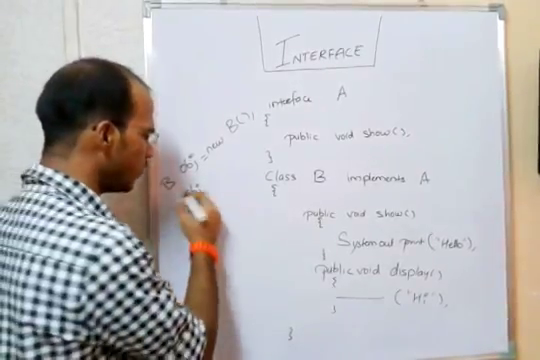 INTERFACE
interface A
{
public void show();
}
Class B implements A
{
public void show()
{
System out print ("Hello");
}
public void display()
{
("Hi");
}
}
B obj = new B();
obj